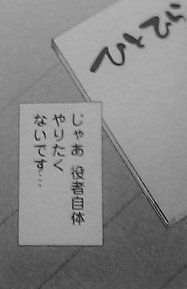 じゃあ 役者自体
やりたく
ないです…